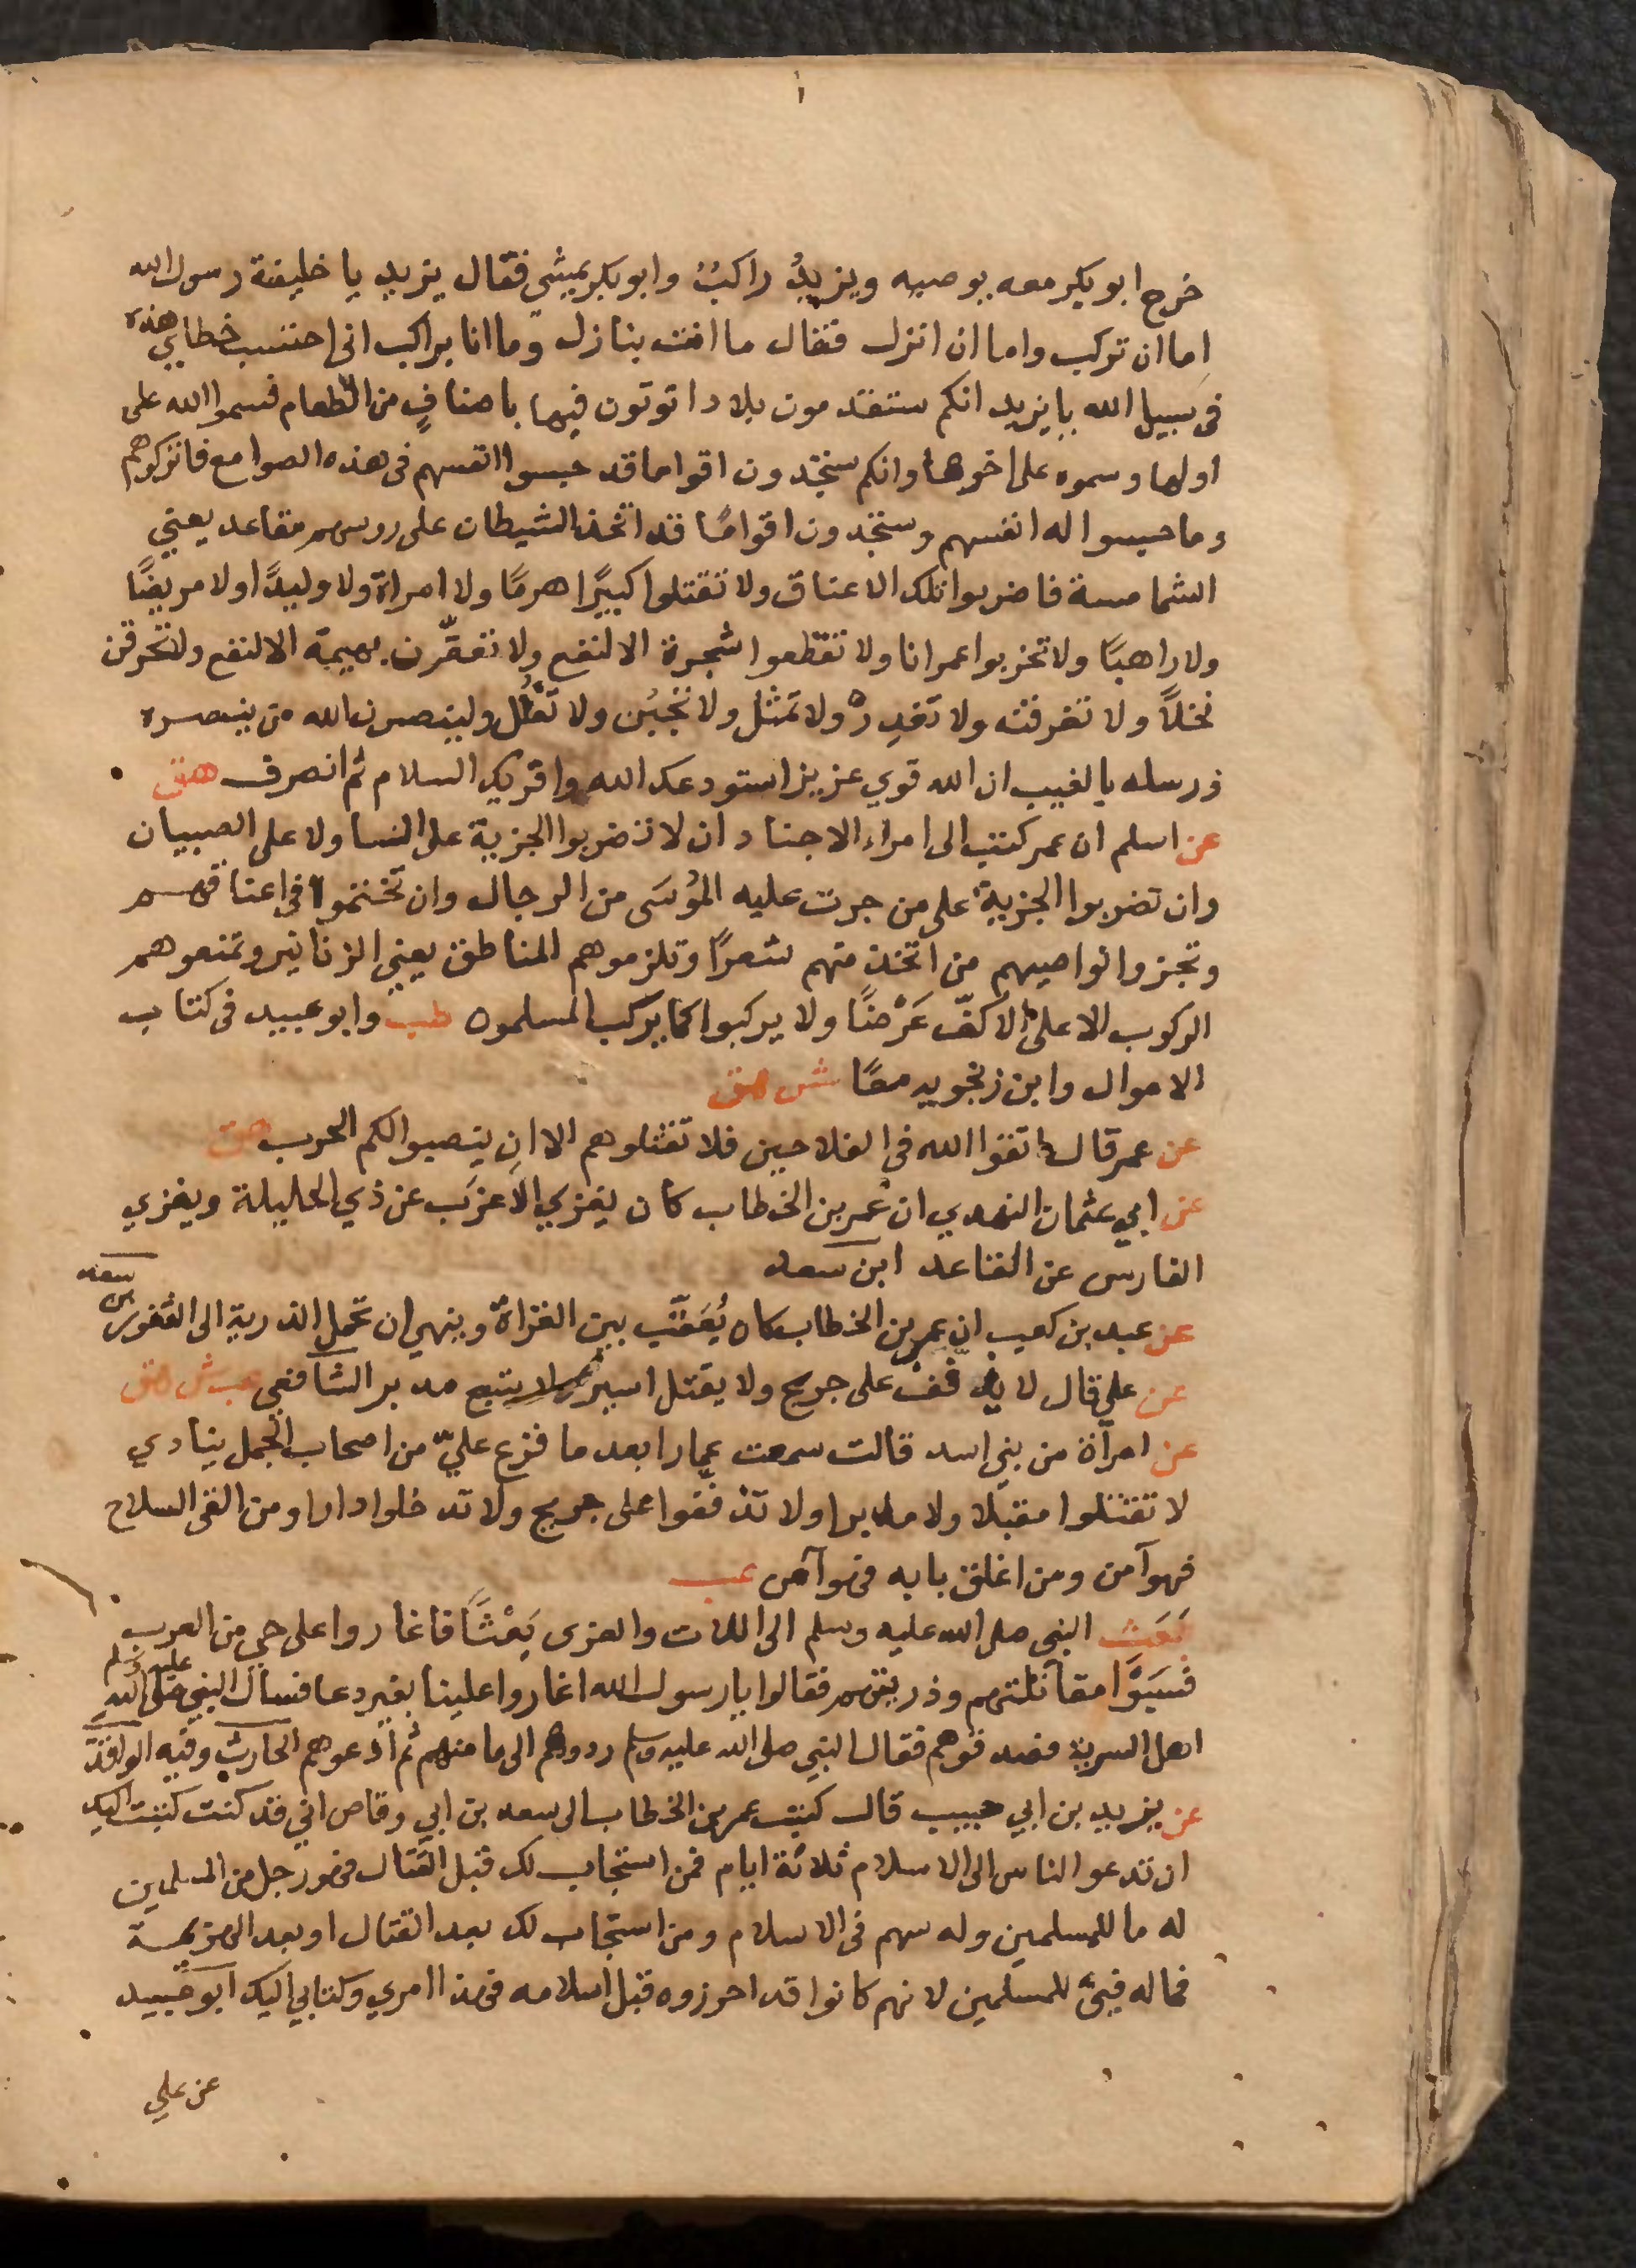 ١
خرج ابو بكر معه يوصيه ويزيدُ راكبٌ وابو بكر يمشي فقال يزيد يا خليفة رسول الله
اِما ان تركب واما ان انزل فقال ما انت بنازل وما انا براكب انى احتسب خطاي هذه
فى سبيل الله يا يزيد انكم ستقدمون بلادا توتون فيها باصنافٍ من الطعام فسموا الله على
اولها وسموه على اخرها وانكم ستجدون اقواما قد حبسوا انفسهم فى هذه الصوامع فاتركوهم
وما حبسوا له انفسهم وستجدون اقوامًا قد اتخذ الشيطان على روسهم مقاعد يعني
الشمامسة فاضربوا تلك الاعناق ولا تقتلوا كبيرًا هرمًا ولا امراة ولا وليدًا ولا مريضًا
ولا راهبًا ولا تخربوا عمرانا ولا تقطعوا شجرة الا لنفع ولا تعقّرن بهيمة الا لنفع ولا تحرقن
نخلًا ولا تغرقنه ولا تغدِرْ ولا تمثّل ولا تجبُن ولا تغلُل ولينصرن الله من ينصره
ورسله بالغيب ان الله قوي عزيز استودعك الله واقريك السلام ثم انصرف هق
عن اسلم ان عمر كتب الى امراء الاجناد ان لا تضربوا الجزية على النسا ولا على الصبيان
وان تضربوا الجزية على من جرت عليه المُوسَى من الرجال وان تختموا فى اعناقهم
وتجزوا نواصيهم من اتخذ منهم شعرًا وتلزموهم المناطق يعني الزنانير وتمنعوهم
الركوب الا على الاكفّ عَرْضًا ولا يركبوا كما يركب المسلمون طب وابو عبيد فى كتاب
الاموال وابن زنجويه معًا ش هق
عن عمر قال اتقوا الله فى الفلاحين فلا تقتلوهم الا ان ينصبوا لكم الحرب هق
عن ابي عثمان النهدي ان عمر بن الخطاب كان يغزي الاعزب عن ذي الحليلة ويغزي
الفارس عن القاعد ابن سعد
عن عبد بن كعب ان عمر بن الخطاب كان يُعَقّب بين الغزاة وينهى ان تحمل الذرية الى الثغور بن سعد
عن علي قال لا يذفف على جريح ولا يقتل اسير ولا يتبع مدبر الشافعى عب ش هق
عن امرأة من بني اسد قالت سمعت عمارا بعد ما فزع عليّ من اصحاب الجمل ينادي
لا تقتلوا مقبلا ولا مدبرا ولا تذففوا على جريح ولا تدخلوا دارا ومن القى السلاح
فهو آمن ومن اغلق بابه فهو آمن عب
بَعَث النبي صلى الله عليه وسلم الى اللات والعزى بَعْثًا فاغاروا على حي من العرب
فسَبَوْا مقاتلتهم وذريتهم فقالوا يا رسول الله اغاروا علينا بغير دعا فسال النبي صلى الله عليه وسلم
اهل السرية فصدقوهم فقال النبي صلى الله عليه وسلم ردوهم الى مامنهم ثم ادعوهم الحارث وفيه الواقدى
عن يزيد بن ابي حبيب قال كتب عمر بن الخطاب الى سعد بن ابي وقاص اني قد كنت كتبت اليك
ان تدعو الناس الى الاسلام ثلاثة ايام فمن استجاب لك قبل القتال فهو رجل من المسلمين
له ما للمسلمين وله سهم فى الاسلام ومن استجاب لك بعد القتال او بعد الهزيمة
فماله فيئ للمسلمين لانهم كانوا قد احرزوه قبل اسلامه فهذا امري وكتابي اليك ابو عبيد
عن علي